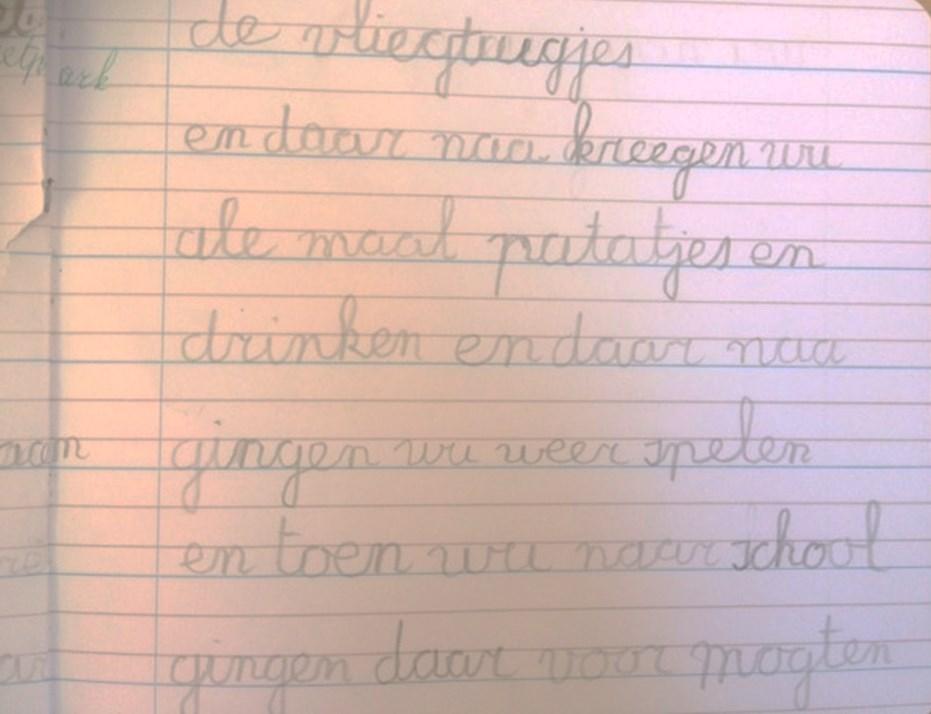 de vliegtuigjes
en daar naa kreegen wu
ale maal patatjes en
drinken en daar naa
gingen wu weer spelen
en toen wu naar school
gingen daar voor mogten